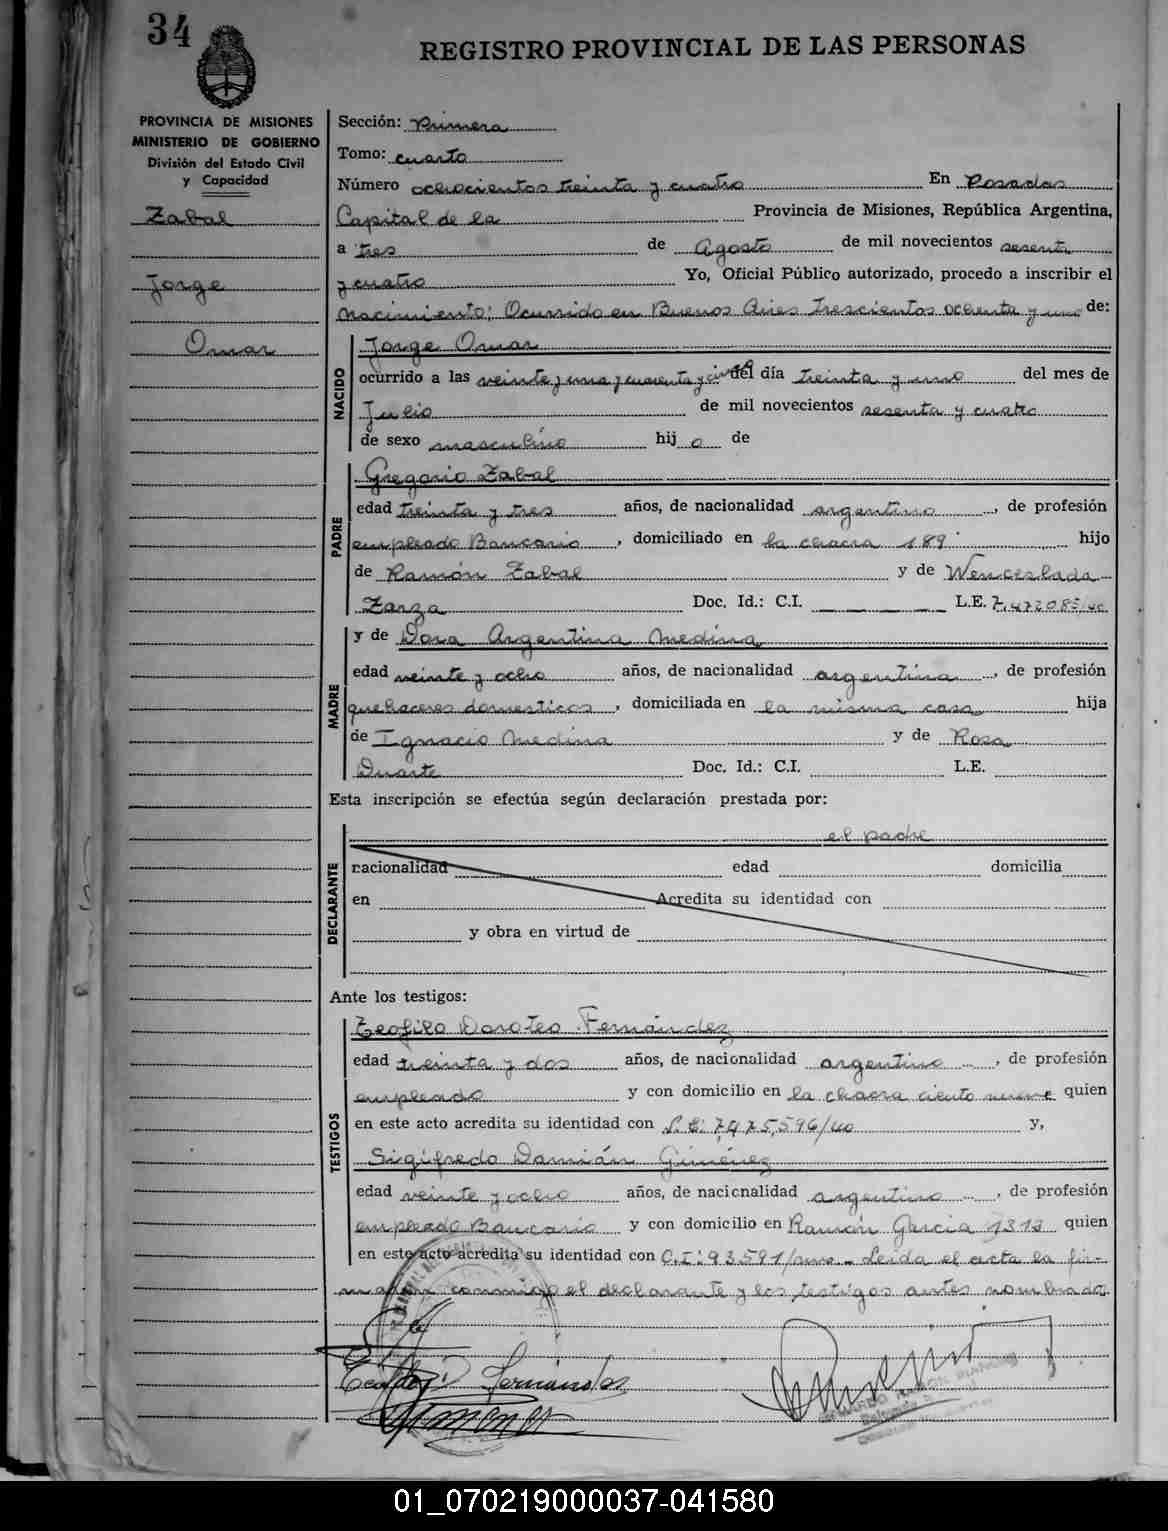 34
REGISTRO PROVINCIAL DE LAS PERSONAS
PROVINCIA DE MISIONES
MINISTERIO DE GOBIERNO
División del Estado Civil
y Capacidad
Zabal
Jorge
Omar
Sección: Primera
Tomo: cuarto
Número ochocientos treinta y cuatro En Posadas
Capital de la Provincia de Misiones, República Argentina,
a tres de Agosto de mil novecientos sesenta
y cuatro Yo, Oficial Público autorizado, procedo a inscribir el
Nacimiento; Ocurrido en Buenos Aires trescientos ochenta y uno de:
NACIDO
Jorge Omar
ocurrido a las veinte y una y cuarenta y cinco del día treinta y uno del mes de
Julio de mil novecientos sesenta y cuatro
de sexo masculino hij o de
PADRE
Gregorio Zabal
edad treinta y tres años, de nacionalidad argentino, de profesión
empleado Bancario, domiciliado en la chacra 189 hijo
de Ramón Zabal y de Wenceslada
Zarza Doc. Id.: C.I. L.E. 7.472085/uc
MADRE
y de Dora Argentina Medina
edad veinte y ocho años, de nacionalidad argentina, de profesión
quehaceres domesticos, domiciliada en la misma casa hija
de Ignacio Medina y de Rosa
Duarte Doc. Id.: C.I. L.E.
Esta inscripción se efectúa según declaración prestada por:
DECLARANTE
el padre
nacionalidad edad domicilia
en Acredita su identidad con
y obra en virtud de
Ante los testigos:
TESTIGOS
Teofilo Doroteo Fernández
edad treinta y dos años, de nacionalidad argentino, de profesión
empleado y con domicilio en la chacra ciento nueve quien
en este acto acredita su identidad con L.E: 7,475,596/uo y,
Sigifredo Damián Giménez
edad veinte y ocho años, de nacionalidad argentino, de profesión
empleado Bancario y con domicilio en Ramón Garcia 1313 quien
en este acto acredita su identidad con C.I: 93591/mns_ Leida el acta la fir-
man conmigo el declarante y los testigos antes nombrados.
Teofilo D Fernández
Gimenez
01_070219000037-041580